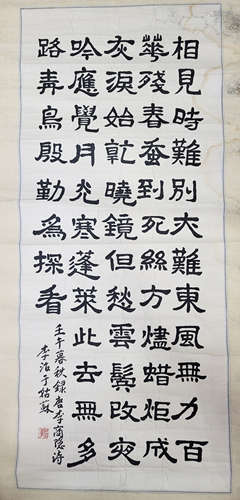 相見時難別亦難東風無力百
華殘春蚕到死絲方燼蜡炬成
灰淚始乾曉鏡但愁雲鬢改夜
吟應覺月光寒蓬萊此去無多
路青鳥殷勤為探看
壬午暮秋録唐李商隐诗
李治于姑蘇